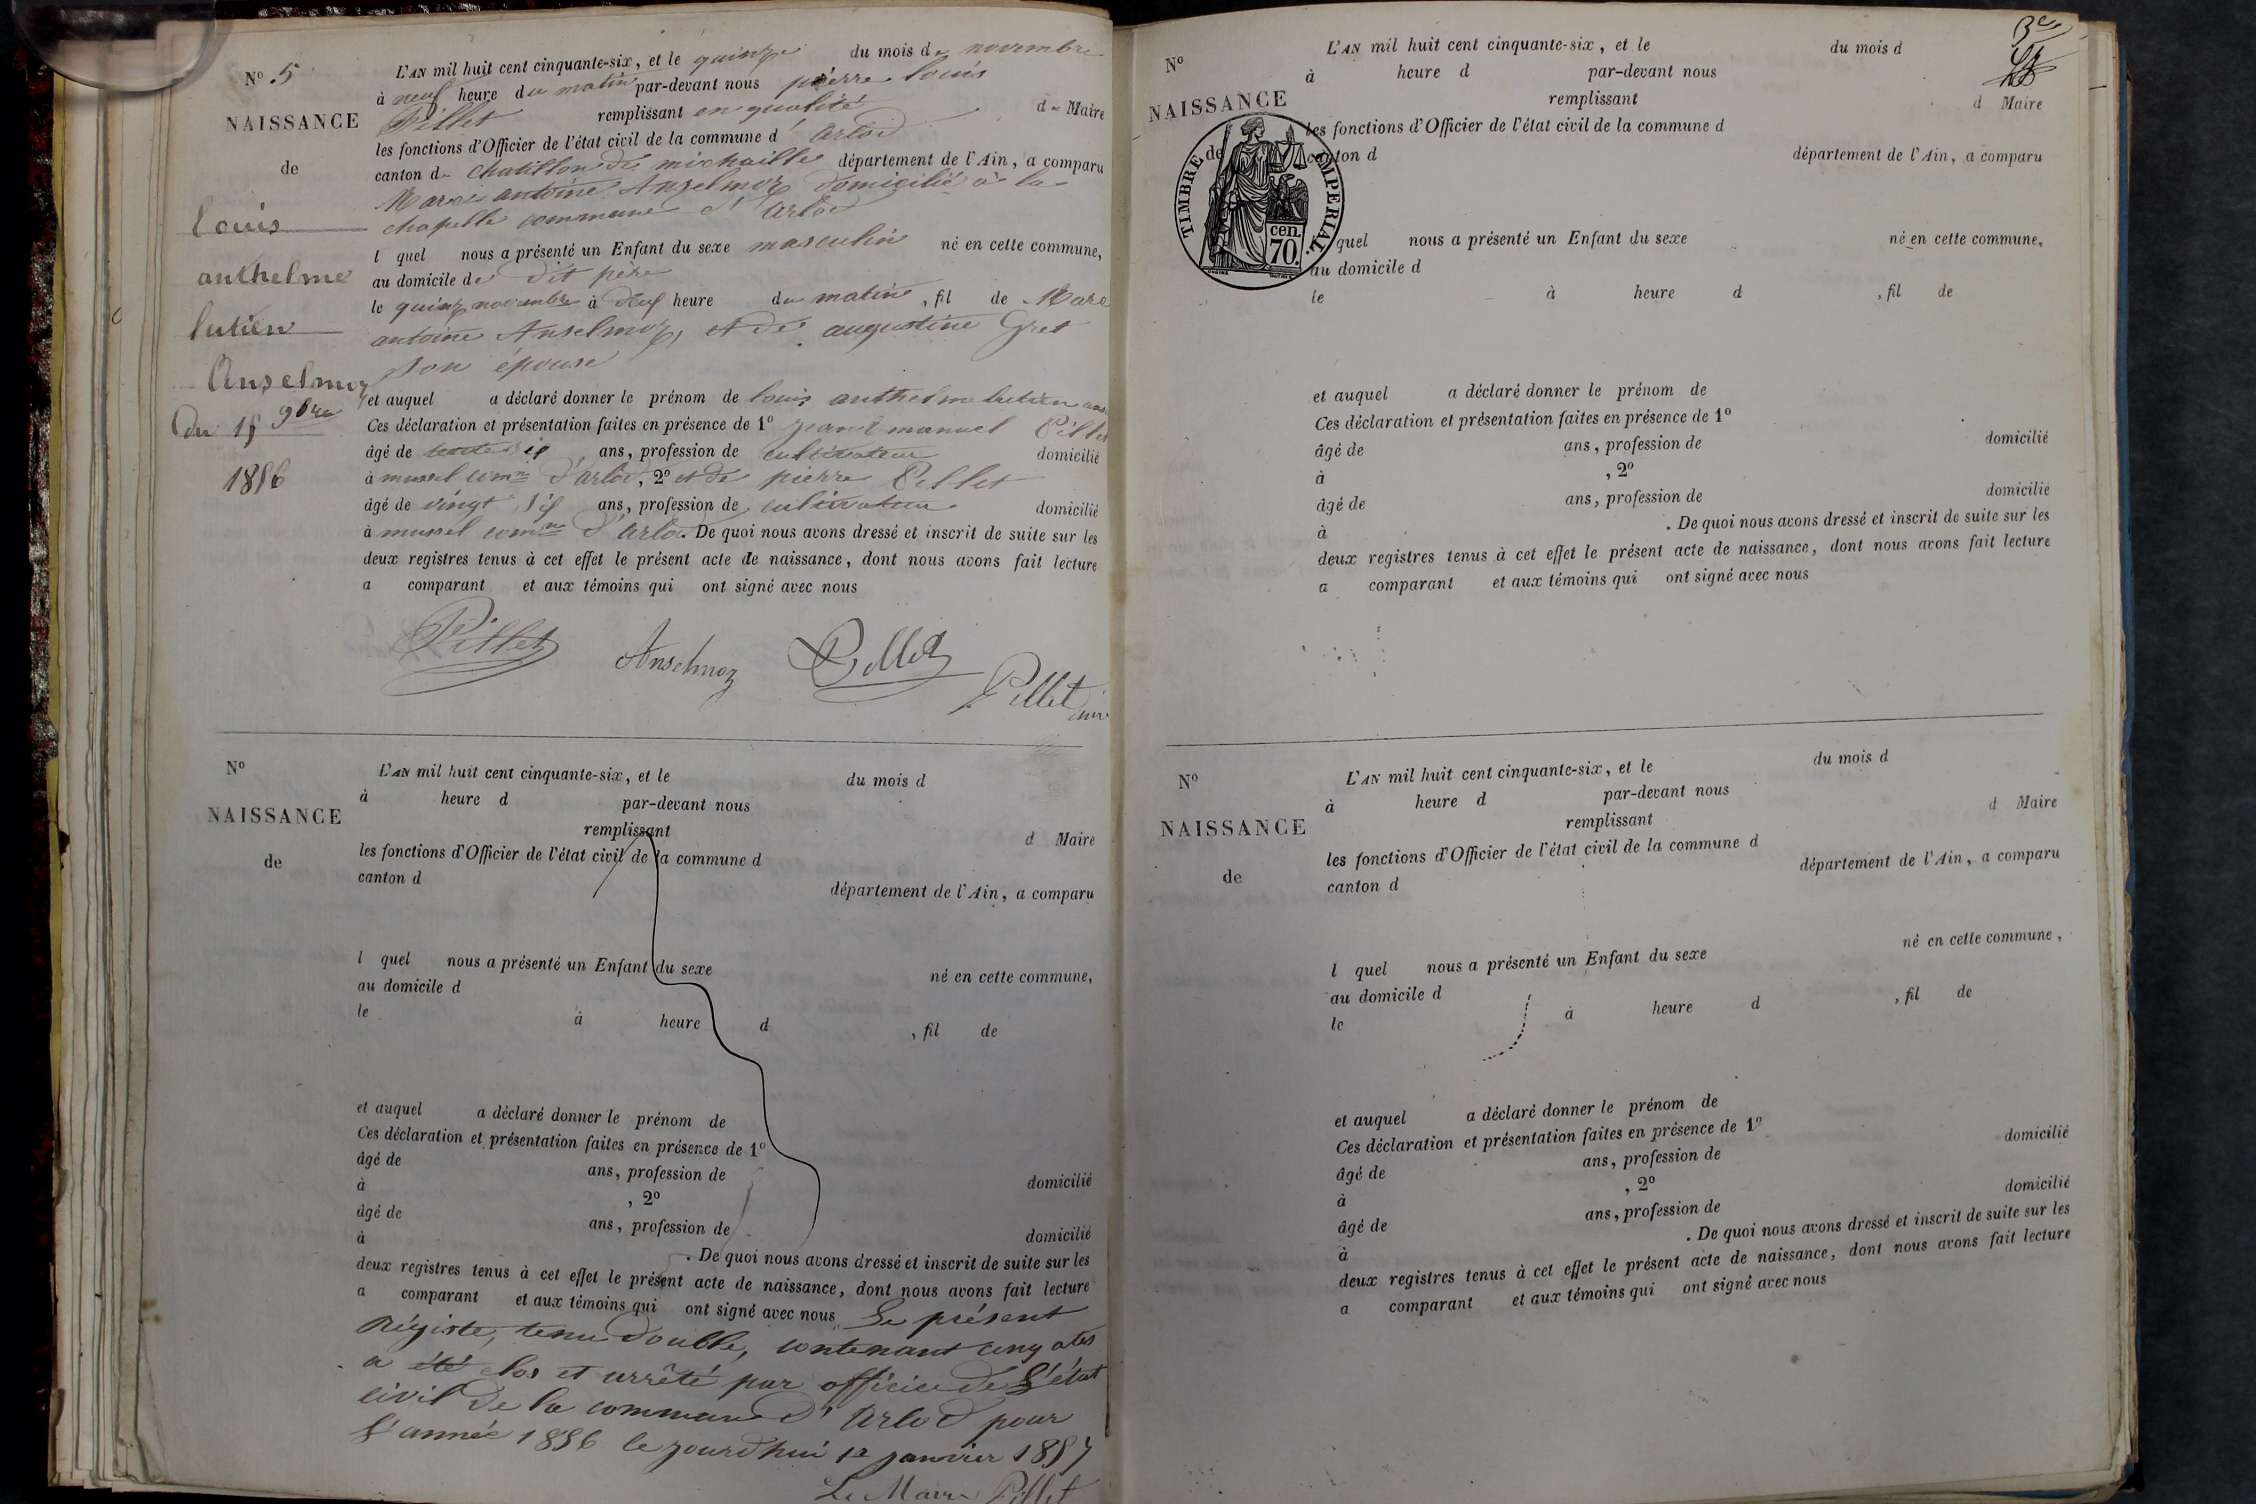 N° 5
NAISSANCE
de
louis
anthelme
lutien
Anselmoz
du 15 9bre
1856
L'AN mil huit cent cinquante-six, et le quinze du mois de novembre
à neuf heure du matin par-devant nous pierre louis
Pillet remplissant en qualité de Maire
les fonctions d'Officier de l'état civil de la commune d'arlod
canton de chatillon de michaille département de l'Ain, a comparu
Marc antoine Anselmoz domicilié à la
chapelle commune d'arlod
l quel nous a présenté un Enfant du sexe masculin né en cette commune,
au domicile de dit père
le quinz novembre à heure du matin, fil de Marc
antoine Anselmoz, et de augustine Gret
son épouse
et auquel a déclaré donner le prénom de louis anthelme lutien
Ces déclaration et présentation faites en présence de 1° jean emanuel Pillet
âgé de ans, profession de cultivateur domicilié
à mussel comne d'arlod, 2° et de pierre Pillet
âgé de vingt six ans, profession de cultivateur domicilié
à mussel comne d'arlod. De quoi nous avons dressé et inscrit de suite sur les
deux registres tenus à cet effet le présent acte de naissance, dont nous avons fait lecture
a comparant et aux témoins qui ont signé avec nous
Pillet Anselmoz Pillet Pillet
N°
NAISSANCE
de
L'AN mil huit cent cinquante-six, et le du mois d
à heure d par-devant nous
remplissant d Maire
les fonctions d'Officier de l'état civil de la commune d
canton d département de l'Ain, a comparu
l quel nous a présenté un Enfant du sexe né en cette commune,
au domicile d
le à heure d , fil de
et auquel a déclaré donner le prénom de
Ces déclaration et présentation faites en présence de 1°
âgé de ans, profession de domicilié
à , 2°
âgé de ans, profession de domicilié
à . De quoi nous avons dressé et inscrit de suite sur les
deux registres tenus à cet effet le présent acte de naissance, dont nous avons fait lecture
a comparant et aux témoins qui ont signé avec nous Le présent
Régiste, tenu double, contenant cinq actes
a été clos et arrêté par officier de l'état
civil de la commune d'Arlod pour
l'année 1856 le jourd'hui 1er janvier 1857
Le Maire Pillet
3e
N°
NAISSANCE
de
TIMBRE IMPERIAL.
70. cen.
L'AN mil huit cent cinquante-six, et le du mois d
à heure d par-devant nous
remplissant d Maire
les fonctions d'Officier de l'état civil de la commune d
canton d département de l'Ain, a comparu
quel nous a présenté un Enfant du sexe né en cette commune,
au domicile d
le à heure d , fil de
et auquel a déclaré donner le prénom de
Ces déclaration et présentation faites en présence de 1°
âgé de ans, profession de domicilié
à , 2°
âgé de ans, profession de domicilié
à . De quoi nous avons dressé et inscrit de suite sur les
deux registres tenus à cet effet le présent acte de naissance, dont nous avons fait lecture
a comparant et aux témoins qui ont signé avec nous
N°
NAISSANCE
de
L'AN mil huit cent cinquante-six, et le du mois d
à heure d par-devant nous
remplissant d Maire
les fonctions d'Officier de l'état civil de la commune d
canton d département de l'Ain, a comparu
l quel nous a présenté un Enfant du sexe né en cette commune,
au domicile d
le à heure d , fil de
et auquel a déclaré donner le prénom de
Ces déclaration et présentation faites en présence de 1°
âgé de ans, profession de domicilié
à , 2°
âgé de ans, profession de domicilié
à . De quoi nous avons dressé et inscrit de suite sur les
deux registres tenus à cet effet le présent acte de naissance, dont nous avons fait lecture
a comparant et aux témoins qui ont signé avec nous